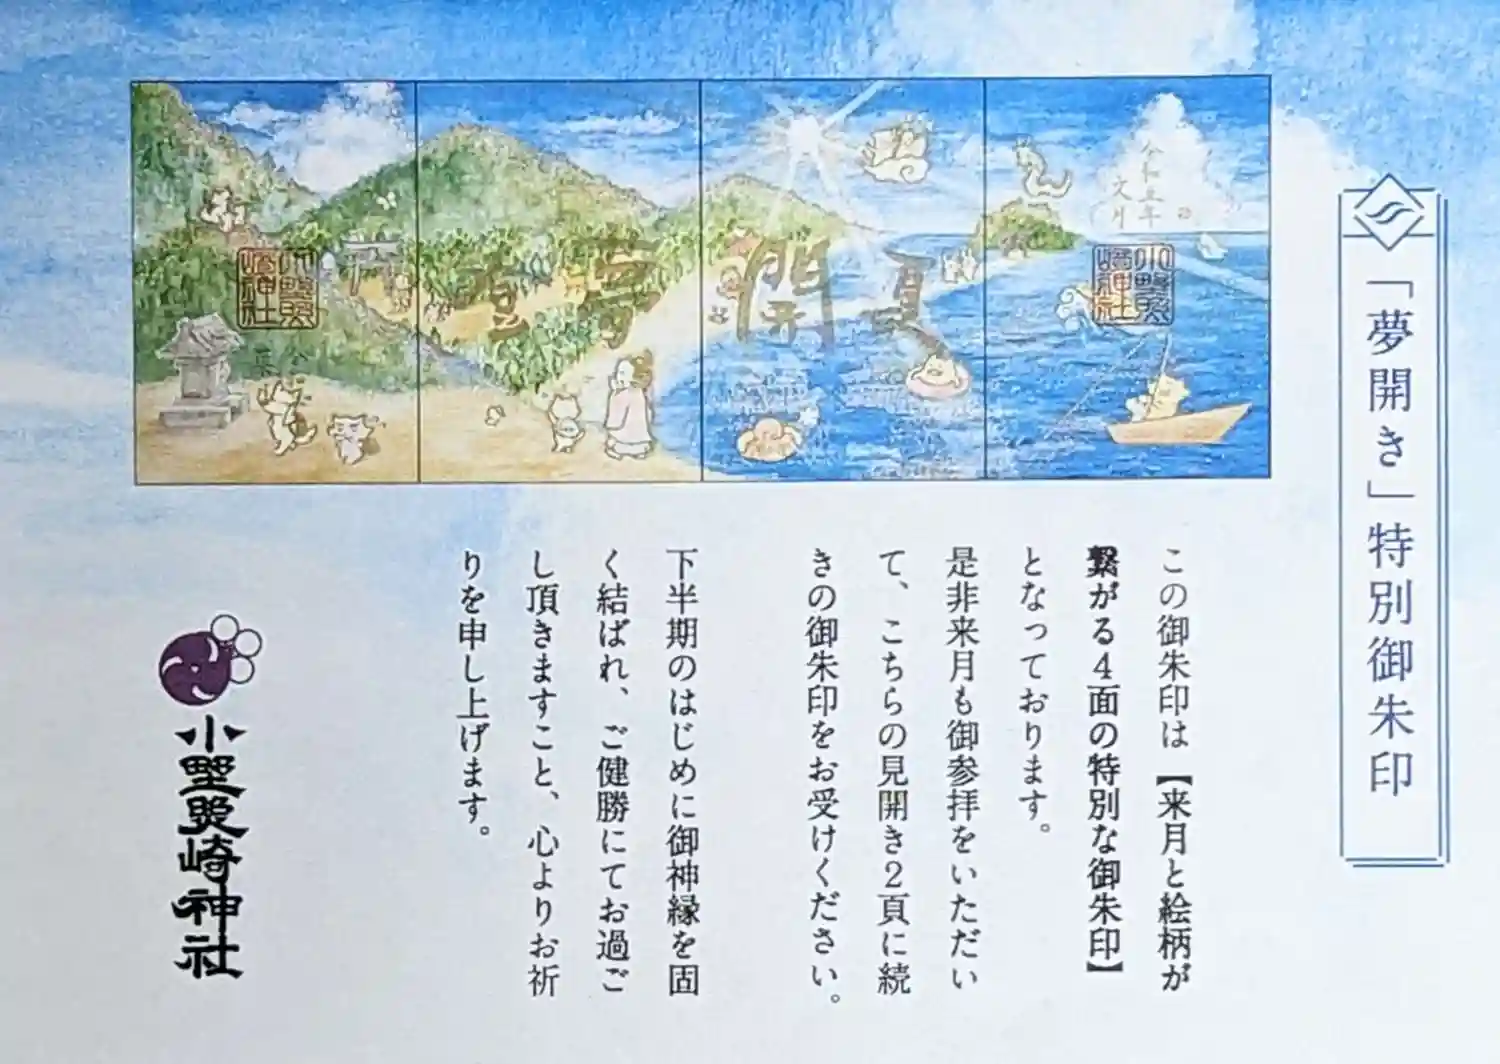 「夢開き」特別御朱印
この御朱印は【来月と絵柄が
繋がる4面の特別な御朱印】
となっております。
是非来月も御参拝をいただい
て、こちらの見開き2頁に続
きの御朱印をお受けください。
下半期のはじめに御神縁を固
く結ばれ、ご健勝にてお過ご
し頂きますこと、心よりお祈
りを申し上げます。
小野照崎神社
令和五年
文月
夏
開
夢
小野照
崎神社
小野照
崎神社